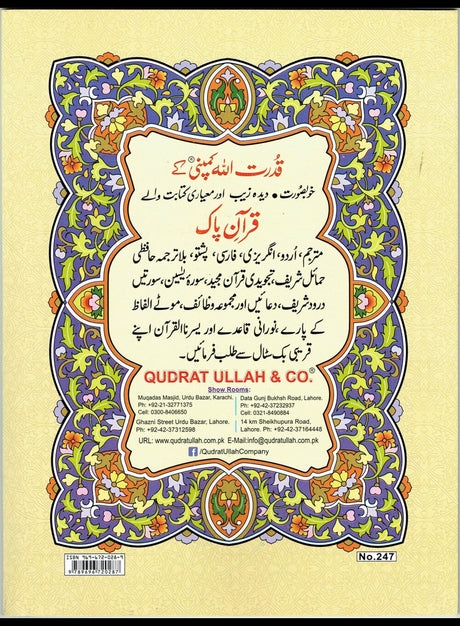 قدرت اللہ کمپنی® کے
خوبصورت • دیدہ زیب اور معیاری کتابت والے
قرآن پاک
مترجم، اُردو، انگریزی، فارسی، پشتو، بلا ترجمہ حافظی
حمائل شریف، تجویدی قرآن مجید، سورۂ یٰسین، سورتیں
درود شریف، دعائیں اور مجموعہ وظائف، موٹے الفاظ
کے پارے، نورانی قاعدے اور یسرنا القرآن اپنے
قریبی بک سٹال سے طلب فرمائیں۔
QUDRAT ULLAH & CO.®
Show Rooms:
Muqadas Masjid, Urdu Bazar, Karachi.
Ph: +92-21-32771375
Cell: 0300-8406650
Data Gunj Bukhsh Road, Lahore.
Ph: +92-42-37232937
Cell: 0321-8490884
Ghazni Street Urdu Bazar, Lahore.
Ph: +92-42-37312598
14 km Sheikhupura Road,
Lahore. Ph: +92-42-37164448
URL: www.qudratullah.com.pk E-Mail:info@qudratullah.com.pk
f /QudratUllahCompany
ISBN 969-672-028-9
9 789696 720287
No.247